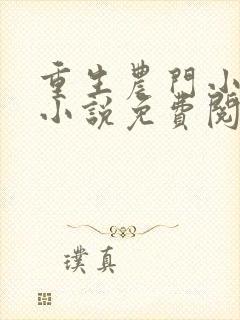 重生農門小
小説免費閱
璞真